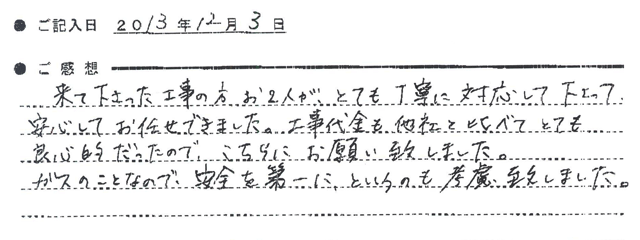 ● ご記入日 2013年12月3日
● ご感想
来て下さった工事の方お2人が、とても丁寧に対応して下さって
安心してお任せできました。工事代金も他社と比べてとても
良心的だったので、こちらにお願い致しました。
ガスのことなので、安全を第一に、というのも考慮致しました。